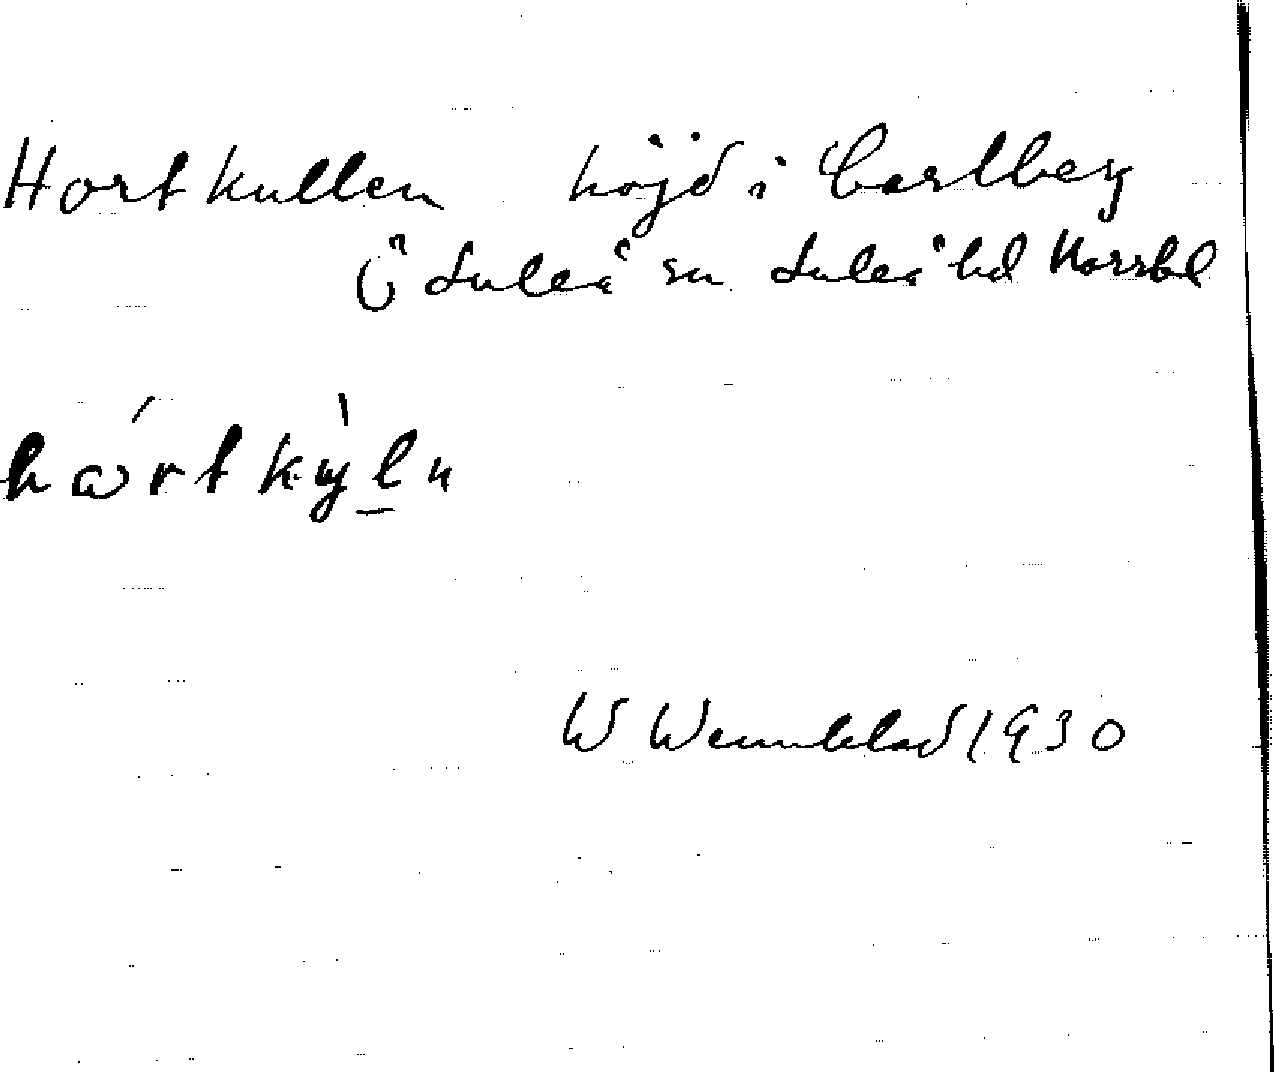 Hortkullen höjd i Carlberg
Ö Luleå sn Luleå hd Norrbl
hårtkyln
W Wennblad 1930